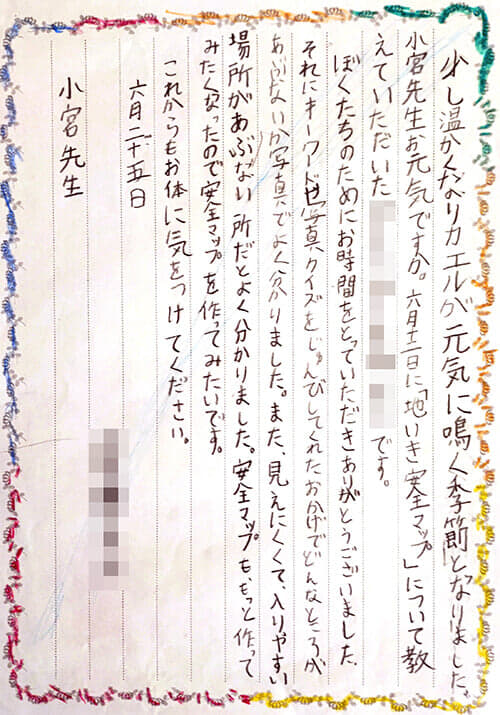 少し温かくなりカエルが元気に鳴く季節となりました。
小宮先生お元気ですか。六月十二日に「地いき安全マップ」について教
えていただいた です。
ぼくたちのためにお時間をとっていただきありがとうございました。
それにキーワードや写真クイズをじゅんびしてくれたおかげでどんなところが
あぶないか写真でよく分かりました。また、見えにくくて、入りやすい
場所があぶない所だとよく分かりました。安全マップをもっと作って
みたくなったので安全マップを作ってみたいです。
これからもお体に気をつけてください。
六月二十五日
小宮先生